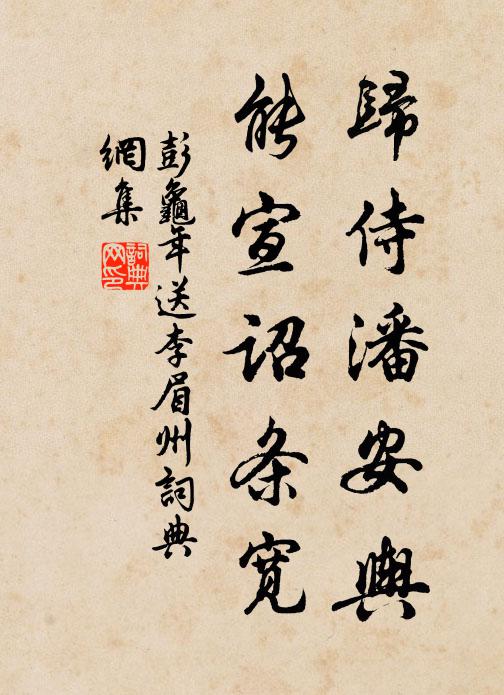 歸侍潘安輿
能宣詔条宽
彭龜年送李眉州詞典
網集
詞典網印